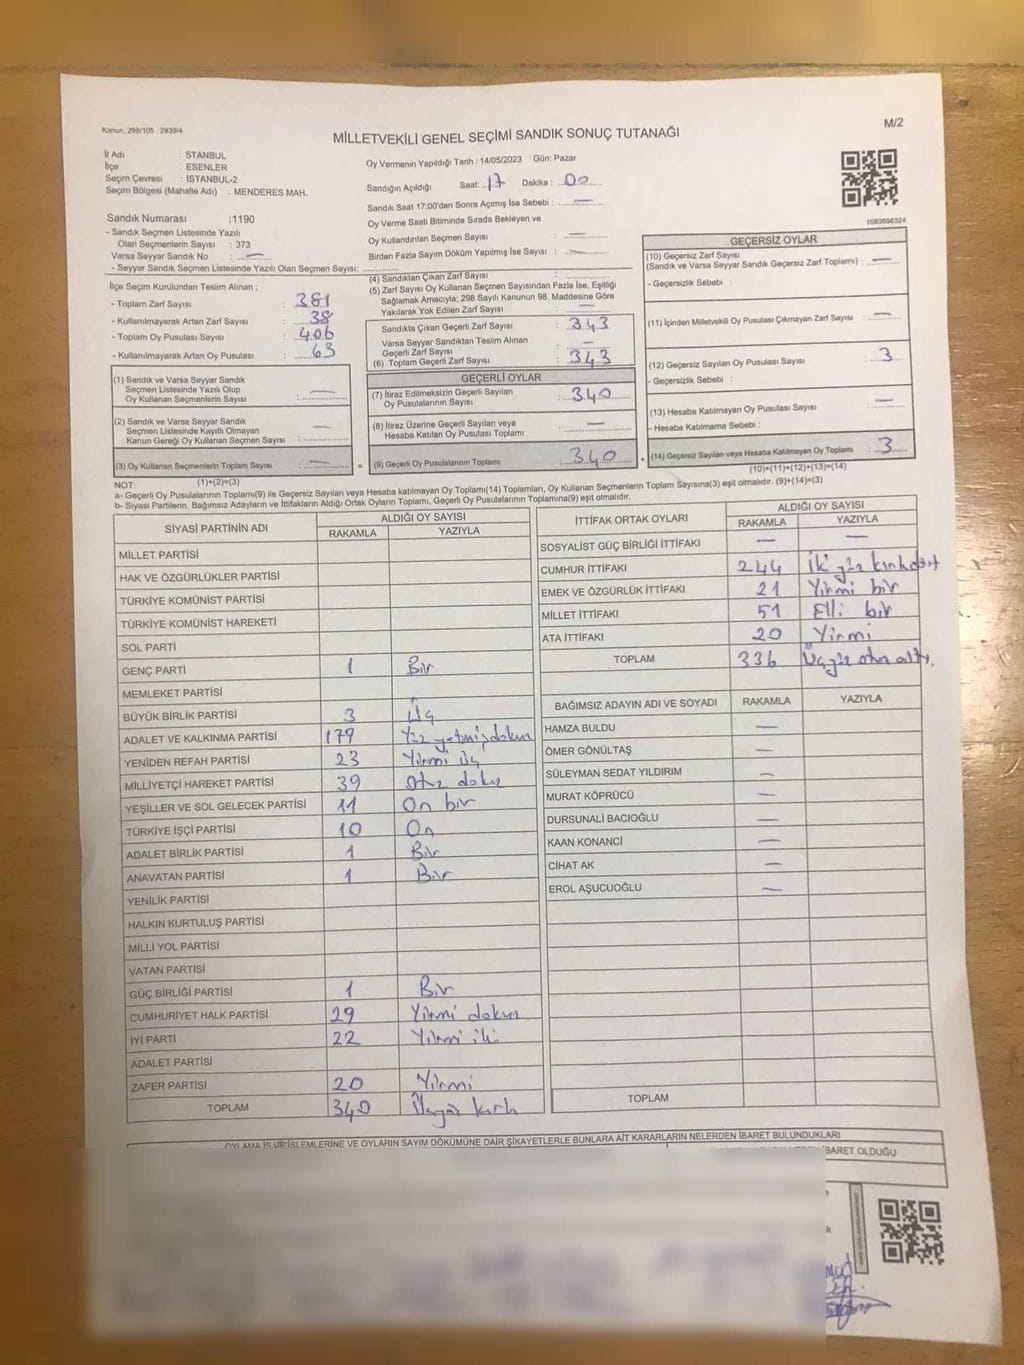 Kanun; 298/105 , 2839/4
MİLLETVEKİLİ GENEL SEÇİMİ SANDIK SONUÇ TUTANAĞI
M/2
İl Adı : STANBUL
İlçe : ESENLER
Seçim Çevresi : İSTANBUL-2
Seçim Bölgesi (Mahalle Adı) : MENDERES MAH.
Oy Vermenin Yapıldığı Tarih : 14/05/2023 Gün: Pazar
Sandığın Açıldığı Saat: 17 Dakika : 00
Sandık Saat 17:00'den Sonra Açımış İse Sebebi : —
Oy Verme Saati Bitiminde Sırada Bekleyen ve
Oy Kullandırılan Seçmen Sayısı : —
Birden Fazla Sayım Döküm Yapılmış İse Sayısı : —
1083696324
Sandık Numarası :1190
- Sandık Seçmen Listesinde Yazılı
Olan Seçmenlerin Sayısı : 373
Varsa Seyyar Sandık No : —
- Seyyar Sandık Seçmen Listesinde Yazılı Olan Seçmen Sayısı:
İlçe Seçim Kurulundan Teslim Alınan ;
- Toplam Zarf Sayısı : 381
- Kullanılmayarak Artan Zarf Sayısı : 38
- Toplam Oy Pusulası Sayısı : 406
- Kullanılmayarak Artan Oy Pusulası : 63
(1) Sandık ve Varsa Seyyar Sandık
Seçmen Listesinde Yazılı Olup
Oy Kullanan Seçmenlerin Sayısı : —
(2) Sandık ve Varsa Seyyar Sandık
Seçmen Listesinde Kayıtlı Olmayan
Kanun Gereği Oy Kullanan Seçmen Sayısı : —
(3) Oy Kullanan Seçmenlerin Toplam Sayısı : —
(1)+(2)=(3)
(4) Sandıktan Çıkan Zarf Sayısı :
(5) Zarf Sayısı Oy Kullanan Seçmen Sayısından Fazla İse, Eşitliği
Sağlamak Amacıyla; 298 Sayılı Kanunun 98. Maddesine Göre
Yakılarak Yok Edilen Zarf Sayısı : —
Sandıkta Çıkan Geçerli Zarf Sayısı : 343
Varsa Seyyar Sandıktan Teslim Alınan
Geçerli Zarf Sayısı : —
(6) Toplam Geçerli Zarf Sayısı : 343
GEÇERLİ OYLAR
(7) İtiraz Edilmeksizin Geçerli Sayılan
Oy Pusulalarının Sayısı : 340
(8) İtiraz Üzerine Geçerli Sayılan veya
Hesaba Katılan Oy Pusulası Toplamı : —
= (9) Geçerli Oy Pusulalarının Toplamı : 340
GEÇERSİZ OYLAR
(10) Geçersiz Zarf Sayısı
(Sandık ve Varsa Seyyar Sandık Geçersiz Zarf Toplamı) : —
- Geçersizlik Sebebi :
(11) İçinden Milletvekili Oy Pusulası Çıkmayan Zarf Sayısı : —
(12) Geçersiz Sayılan Oy Pusulası Sayısı : 3
- Geçersizlik Sebebi :
(13) Hesaba Katılmayan Oy Pusulası Sayısı : —
- Hesaba Katılmama Sebebi :
+ (14) Geçersiz Sayılan veya Hesaba Katılmayan Oy Toplamı : 3
(10)+(11)+(12)+(13)=(14)
NOT:
a- Geçerli Oy Pusulalarının Toplamı(9) ile Geçersiz Sayılan veya Hesaba katılmayan Oy Toplamı(14) Toplamları, Oy Kullanan Seçmenlerin Toplam Sayısına(3) eşit olmalıdır. (9)+(14)=(3)
b- Siyasi Partilerin, Bağımsız Adayların ve İttifakların Aldığı Ortak Oyların Toplamı, Geçerli Oy Pusulalarının Toplamına(9) eşit olmalıdır.
SİYASİ PARTİNİN ADI ALDIĞI OY SAYISI
RAKAMLA YAZIYLA
MİLLET PARTİSİ
HAK VE ÖZGÜRLÜKLER PARTİSİ
TÜRKİYE KOMÜNİST PARTİSİ
TÜRKİYE KOMÜNİST HAREKETİ
SOL PARTİ
GENÇ PARTİ 1 Bir
MEMLEKET PARTİSİ
BÜYÜK BİRLİK PARTİSİ 3 Üç
ADALET VE KALKINMA PARTİSİ 179 Yüz yetmişdokuz
YENİDEN REFAH PARTİSİ 23 Yirmi üç
MİLLİYETÇİ HAREKET PARTİSİ 39 Otuz dokuz
YEŞİLLER VE SOL GELECEK PARTİSİ 11 On bir
TÜRKİYE İŞÇİ PARTİSİ 10 On
ADALET BİRLİK PARTİSİ 1 Bir
ANAVATAN PARTİSİ 1 Bir
YENİLİK PARTİSİ
HALKIN KURTULUŞ PARTİSİ
MİLLİ YOL PARTİSİ
VATAN PARTİSİ
GÜÇ BİRLİĞİ PARTİSİ 1 Bir
CUMHURİYET HALK PARTİSİ 29 Yirmi dokuz
İYİ PARTİ 22 Yirmi iki
ADALET PARTİSİ
ZAFER PARTİSİ 20 Yirmi
TOPLAM 340 Üçyüz kırk
İTTİFAK ORTAK OYLARI ALDIĞI OY SAYISI
RAKAMLA YAZIYLA
SOSYALİST GÜÇ BİRLİĞİ İTTİFAKI — —
CUMHUR İTTİFAKI 244 İki yüz kırkdört
EMEK VE ÖZGÜRLÜK İTTİFAKI 21 Yirmi bir
MİLLET İTTİFAKI 51 Elli bir
ATA İTTİFAKI 20 Yirmi
TOPLAM 336 Üçyüz otuz altı
BAĞIMSIZ ADAYIN ADI VE SOYADI RAKAMLA YAZIYLA
HAMZA BULDU —
ÖMER GÖNÜLTAŞ —
SÜLEYMAN SEDAT YILDIRIM —
MURAT KÖPRÜCÜ —
DURSUNALİ BACIOĞLU —
KAAN KONANCİ —
CİHAT AK —
EROL AŞUCUOĞLU —
TOPLAM
OYLAMA İŞ VE İŞLEMLERİNE VE OYLARIN SAYIM DÖKÜMÜNE DAİR ŞİKAYETLERLE BUNLARA AİT KARARLARIN NELERDEN İBARET BULUNDUKLARI
İBARET OLDUĞU